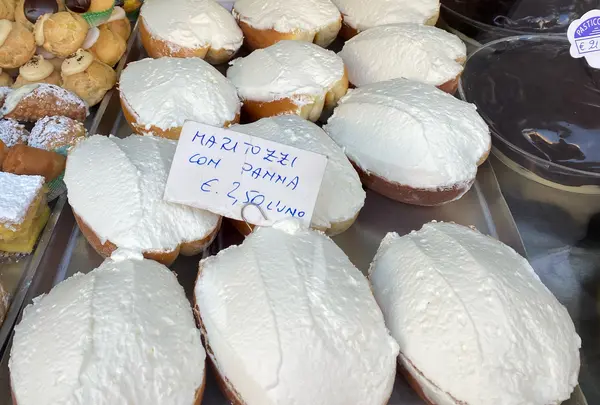 MARITOZZI
CON PANNA
€. 2,50 L'UNO
PASTICC
€ 21